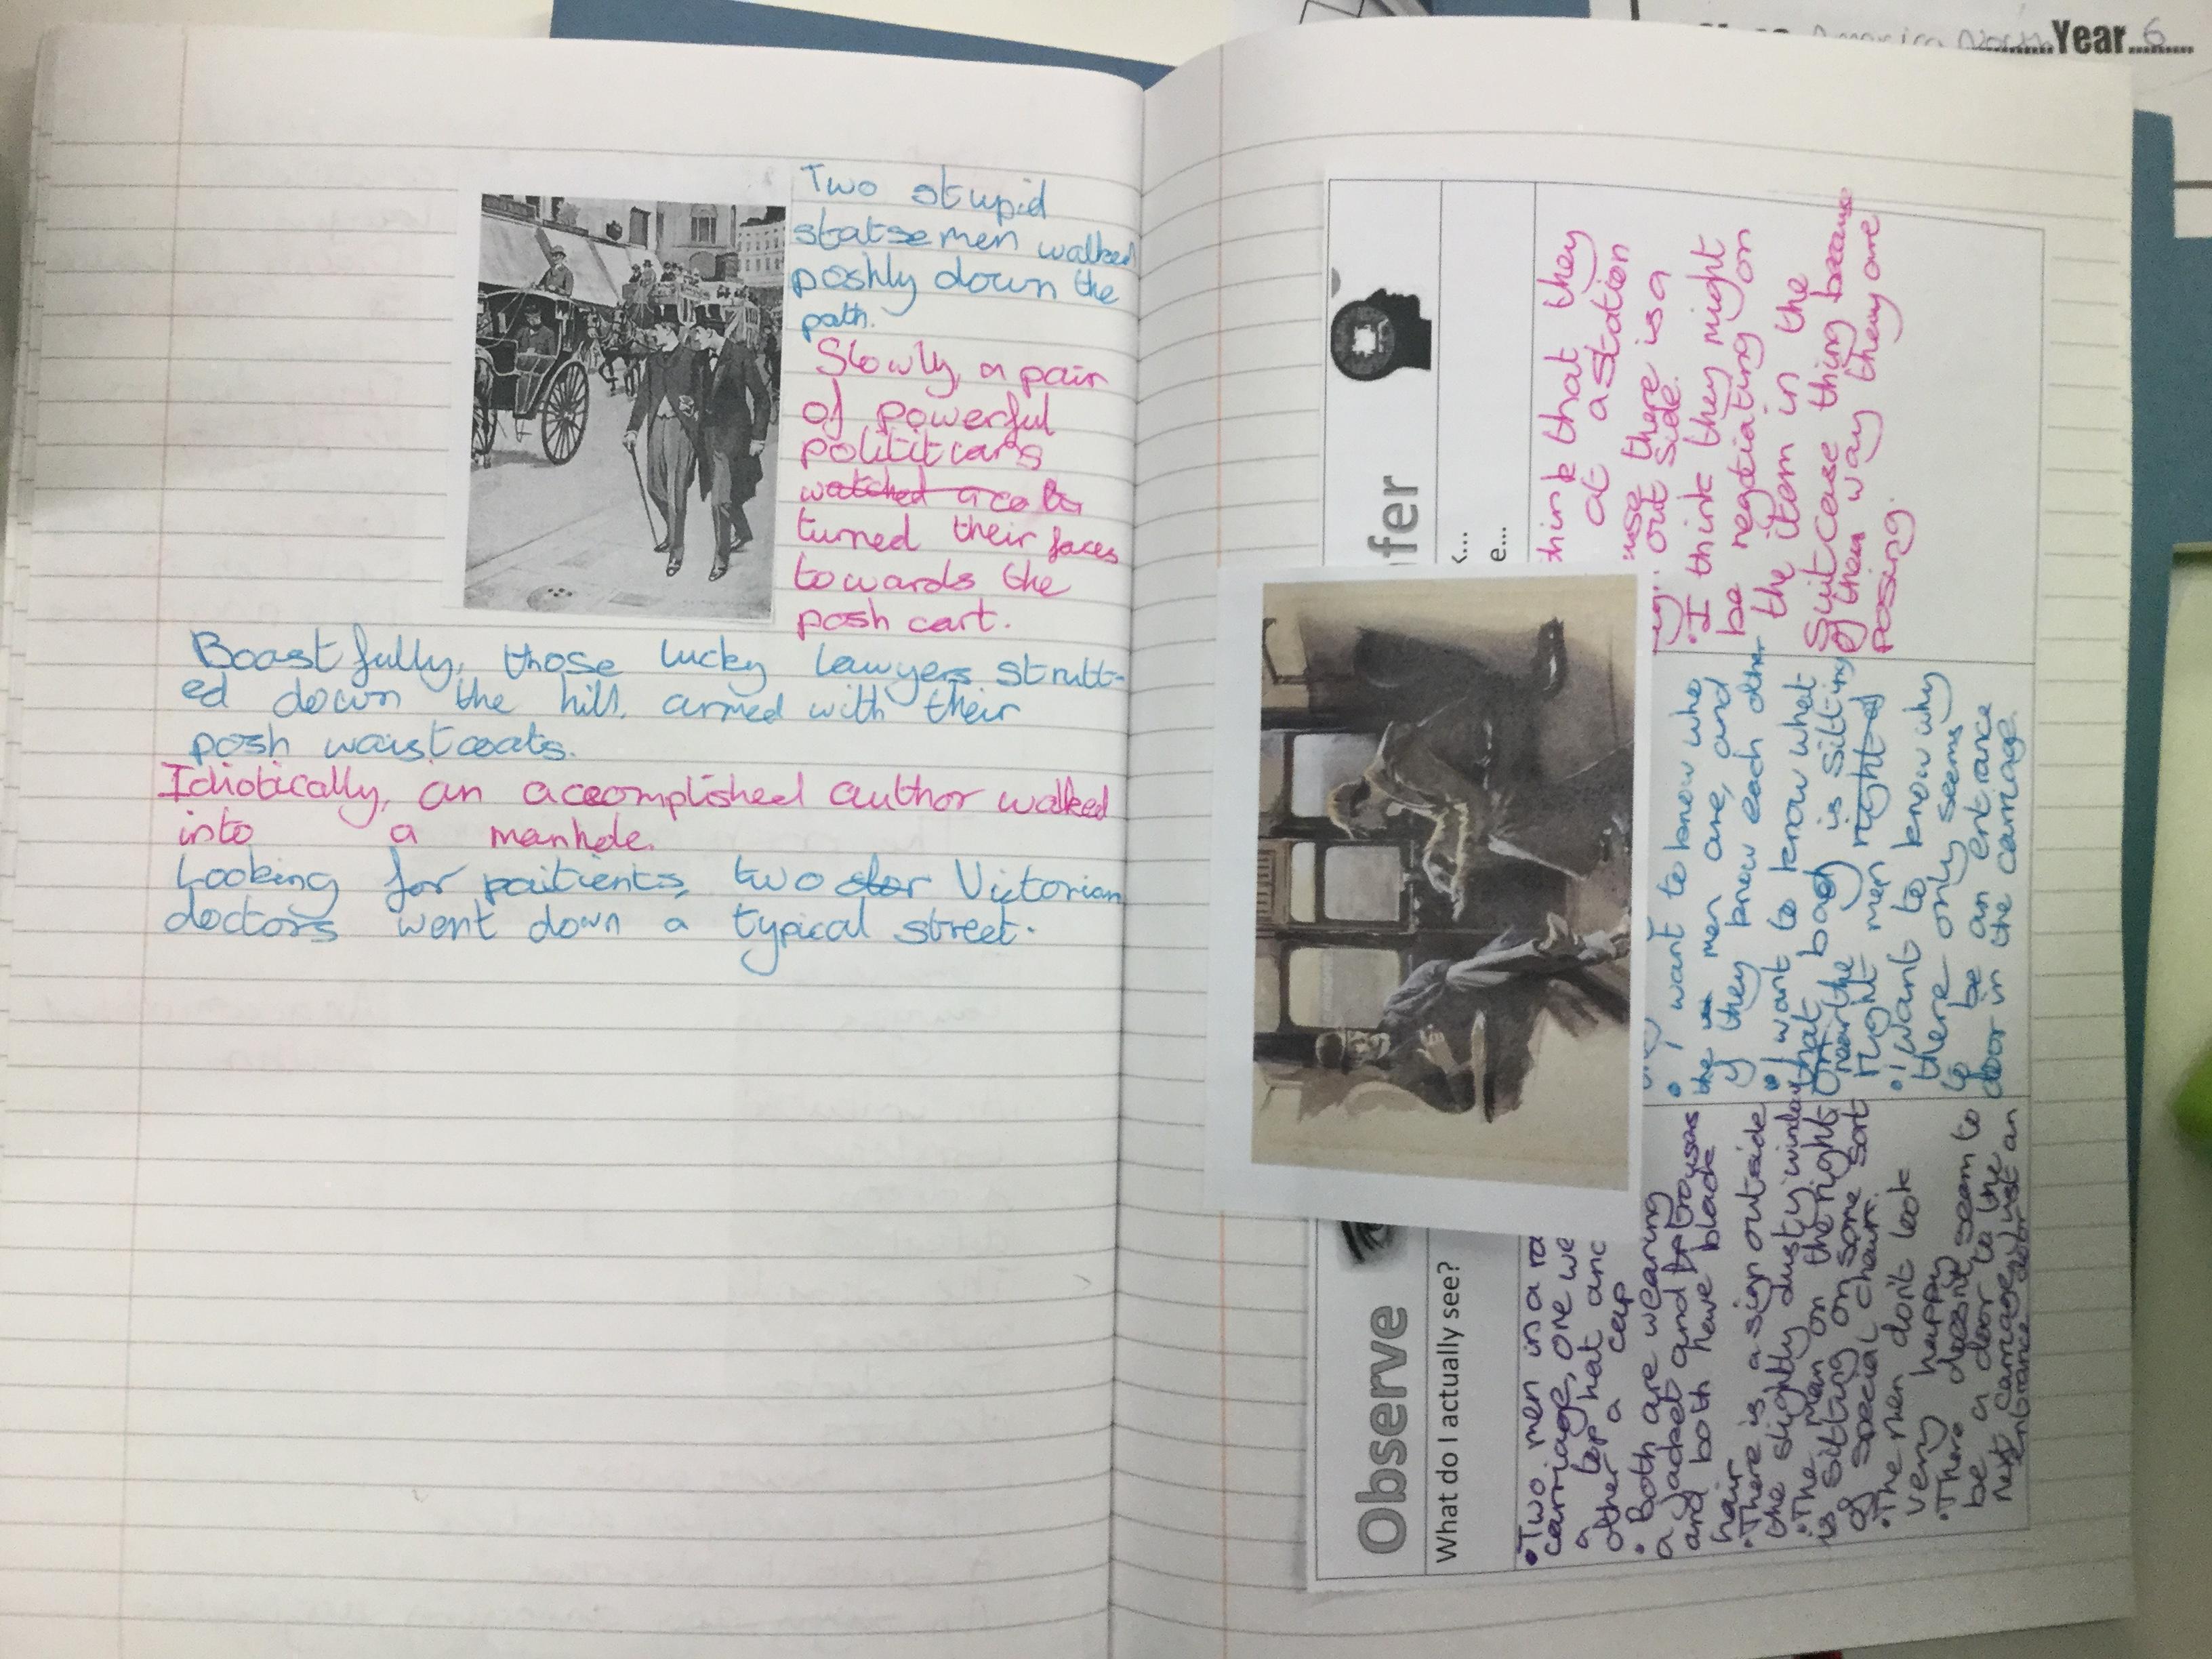 Two stupid
statsemen walked
poshly down the
path.
Slowly, a pair
of powerful
polititcans
watched a cab
turned their faces
towards the
posh cart.
Boastfully, those lucky lawyers strutt-
ed down the hill, armed with their
posh waistcoats.
Idiotically, an accomplished author walked
into a manhole.
Looking for paitients, two Victorian
doctors went down a typical street.
America North Year 6
Observe
What do I actually see?
• Two men in a ra
carriage, one we
a top hat and
other a cap
• Both are wearing
a jacket and trousers
and both have black
hair
• There is a sign outside
the slightly dusty window
• The man on the right
is sitting on some sort
of special chair.
• The men don't look
very happy
• There doesn't seem to
be a door to the
next carriage, just an
entrance door
• I want to know who
the men are, and
if they know each other
• I want to know what
that bag is sitting
near the right of
right men
• I want to know why
there only seems
to be an entrance
door in the carriage.
fer
K...
e...
think that they
at a station
use there is a
out side.
• I think they might
be negotiating on
the item in the
suitcase thing because
of them way they are
posing.